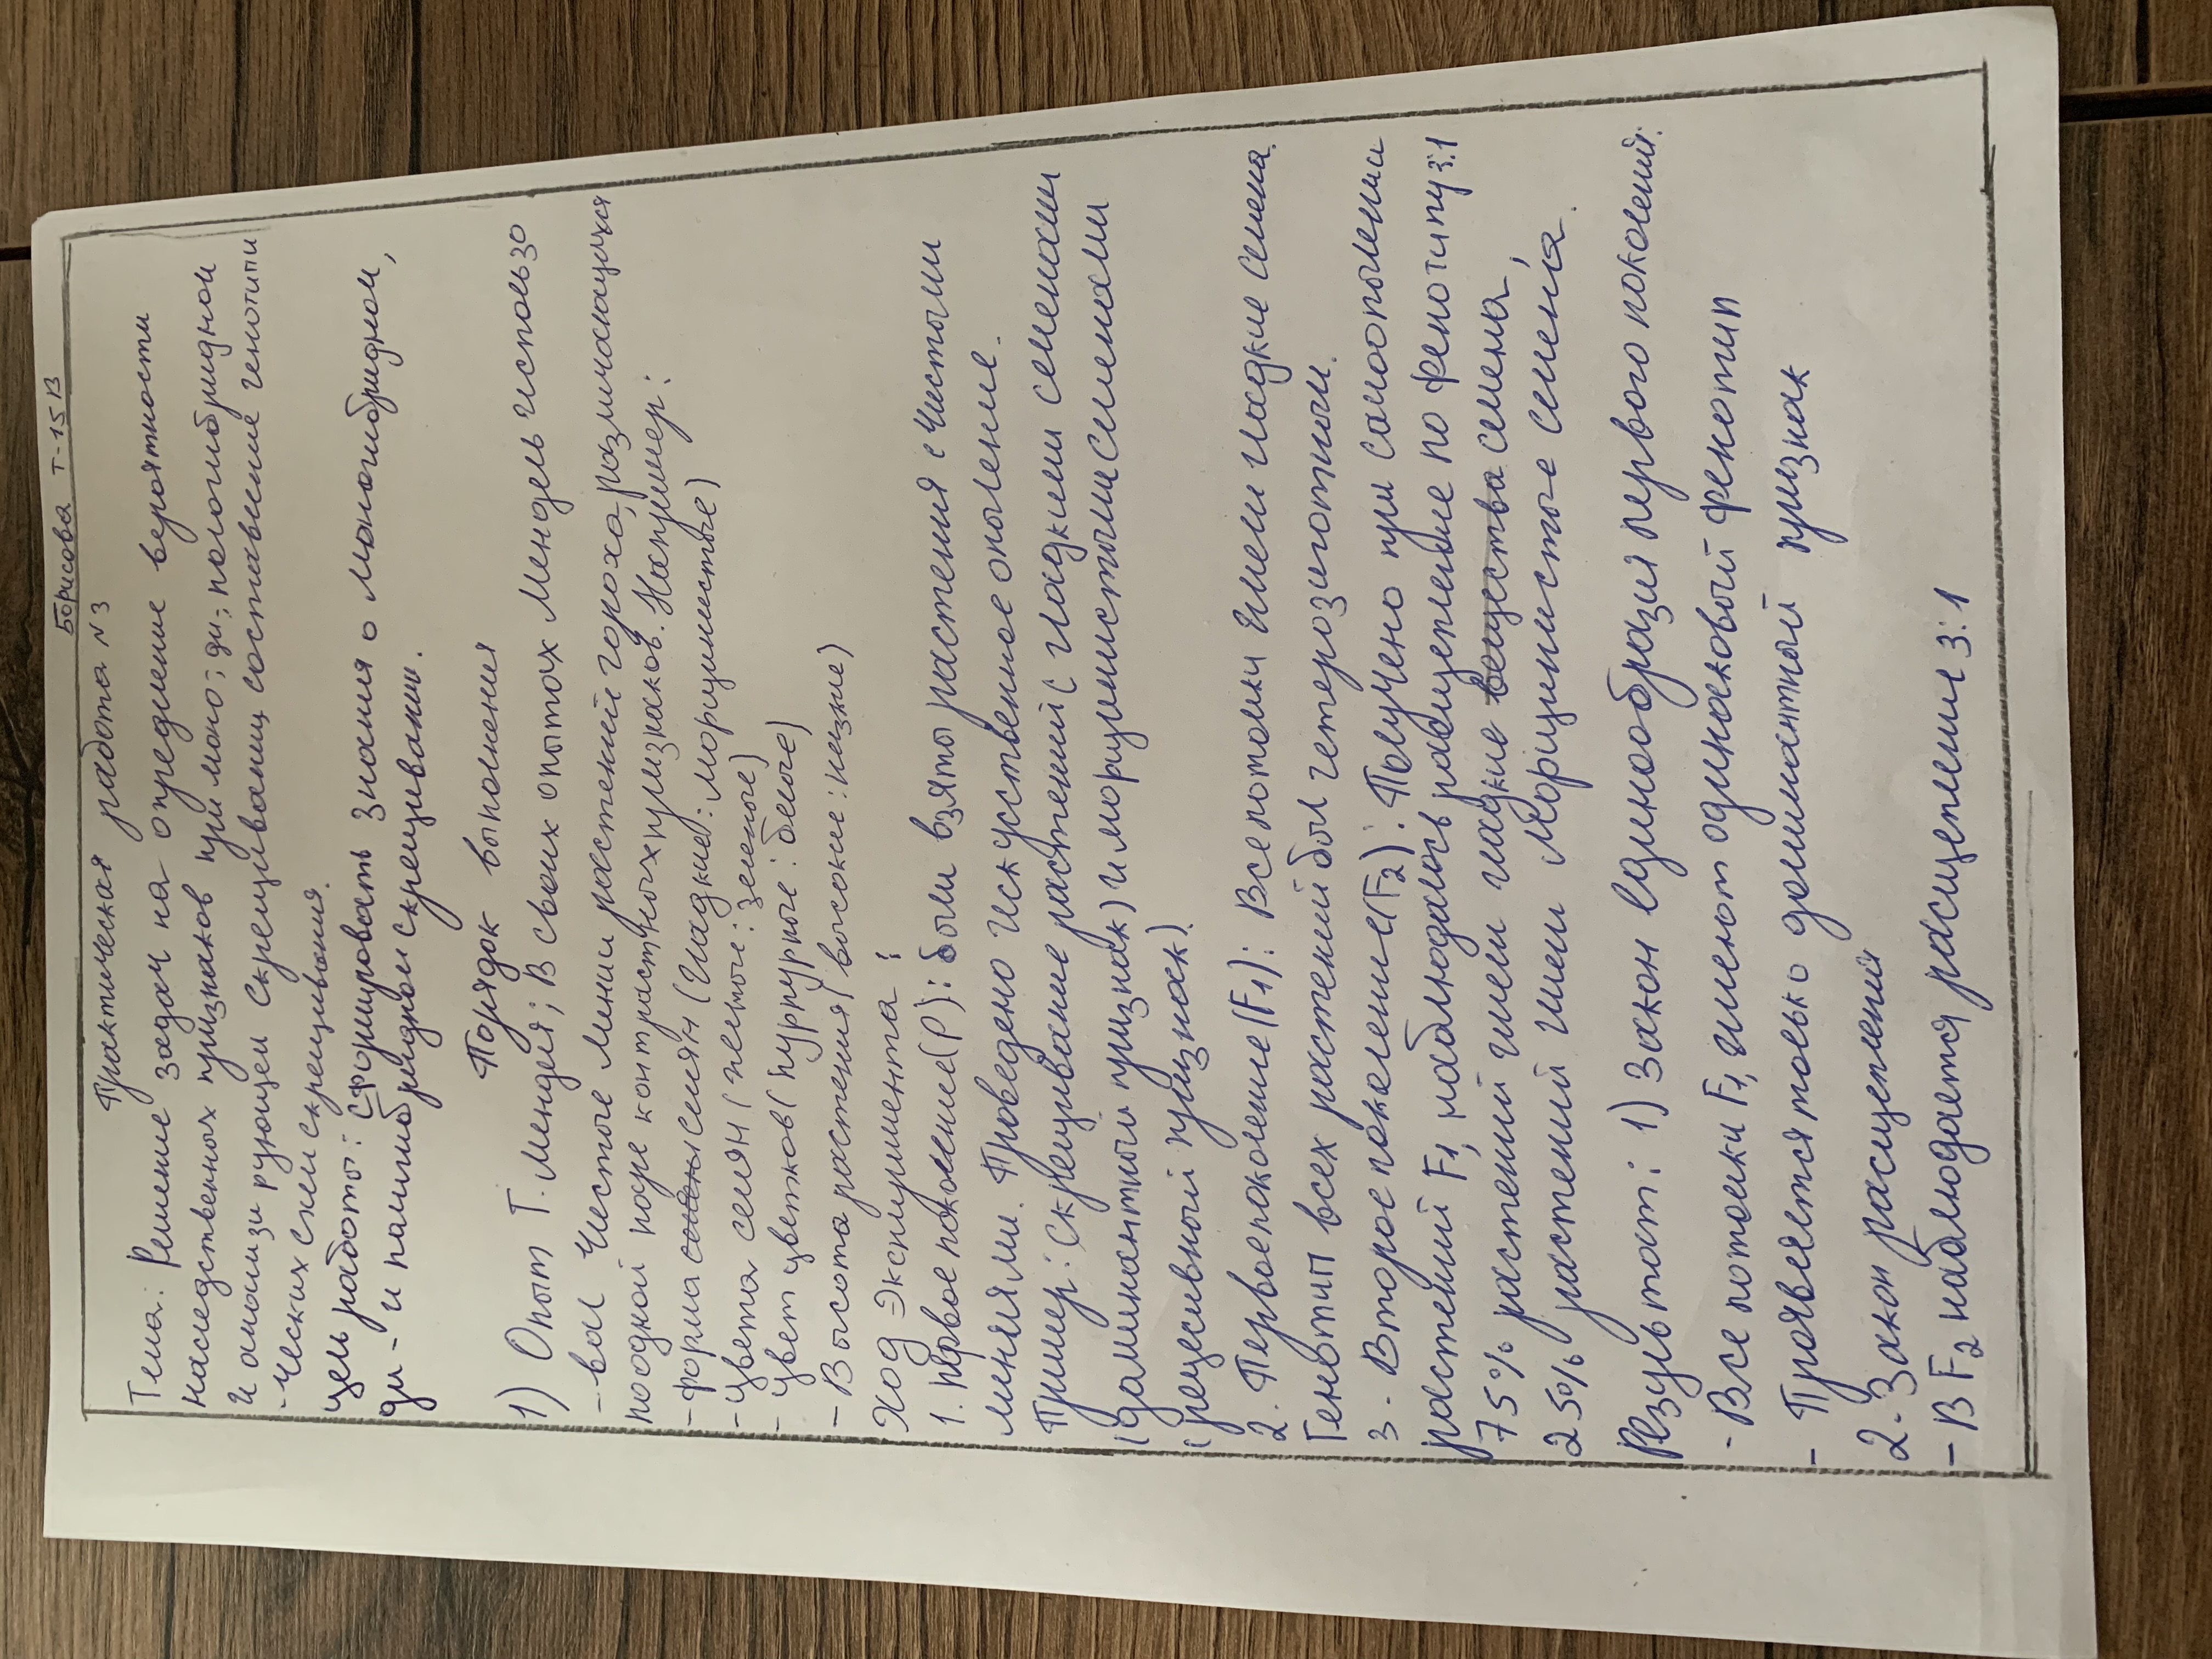 Борисова Т-15В
Практическая работа №3
Тема: Решение задач на опредление вероятности
наследственных признаков при моно; ди; полигибридном
и анализирующем скрещивании, составление генотипи
-ческих схем скрещивания.
Цель работы: Сформировать знания о моногибридном,
ди- и полигибридном скрещивании.
Порядок выполнения
1) Опыт Г. Менделя; В своих опытах Мендель использо
-вал чистые линии растений гороха, различающихся
по одной паре контрастных признаков. Например:
-форма семян (гладкие: морщинистые)
-цвета семян (желтые: зеленые)
- цвет цветков (пурпурные: белые)
- Высота растения (высокие: низкие)
Ход Эксперимента:
1. Первое поколение (Р): были взяты растения с чистыми
линиями. Проведено искуственное опыление.
Пример: Скрещивание растений с гладкими семенами
(доминантный признак) и морщинистыми семенами
(рецессивный признак).
2. Первое поколение (F1): Все потомки имели гладкие семена.
Генотип всех растений был гетерозиготным.
3. Второе поколение (F2): Получено при самоопылении
растений F1, наблюдалось расщепление по фенотипу 3:1
75% растений имели гладкие семена,
25% растений имели морщинистые семена.
Результат: 1) Закон единообразия первого поколения:
- Все потомки F1, имеют одинаковый фенотип
- Проявляется только доминантный признак
2. Закон расщепления
- В F2 наблюдается расщепление 3:1